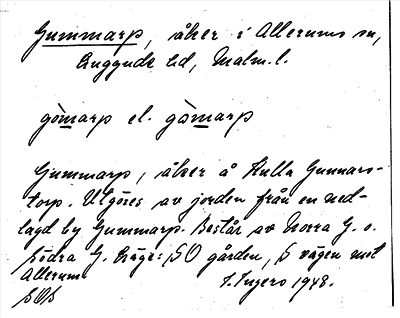 Gummarp, åker i Allerums sn,
Luggude hd, Malm. l.
gòmarp el. gòmarp
Gummarp, åker å Kulla Gunnars-
torp. Utgöres av jorden från en ned-
lagd by Gummarp. Består av Norra G. o.
Södra G. Läge: SO gården, S vägen mot
Allerum
S. Ingers 1948.